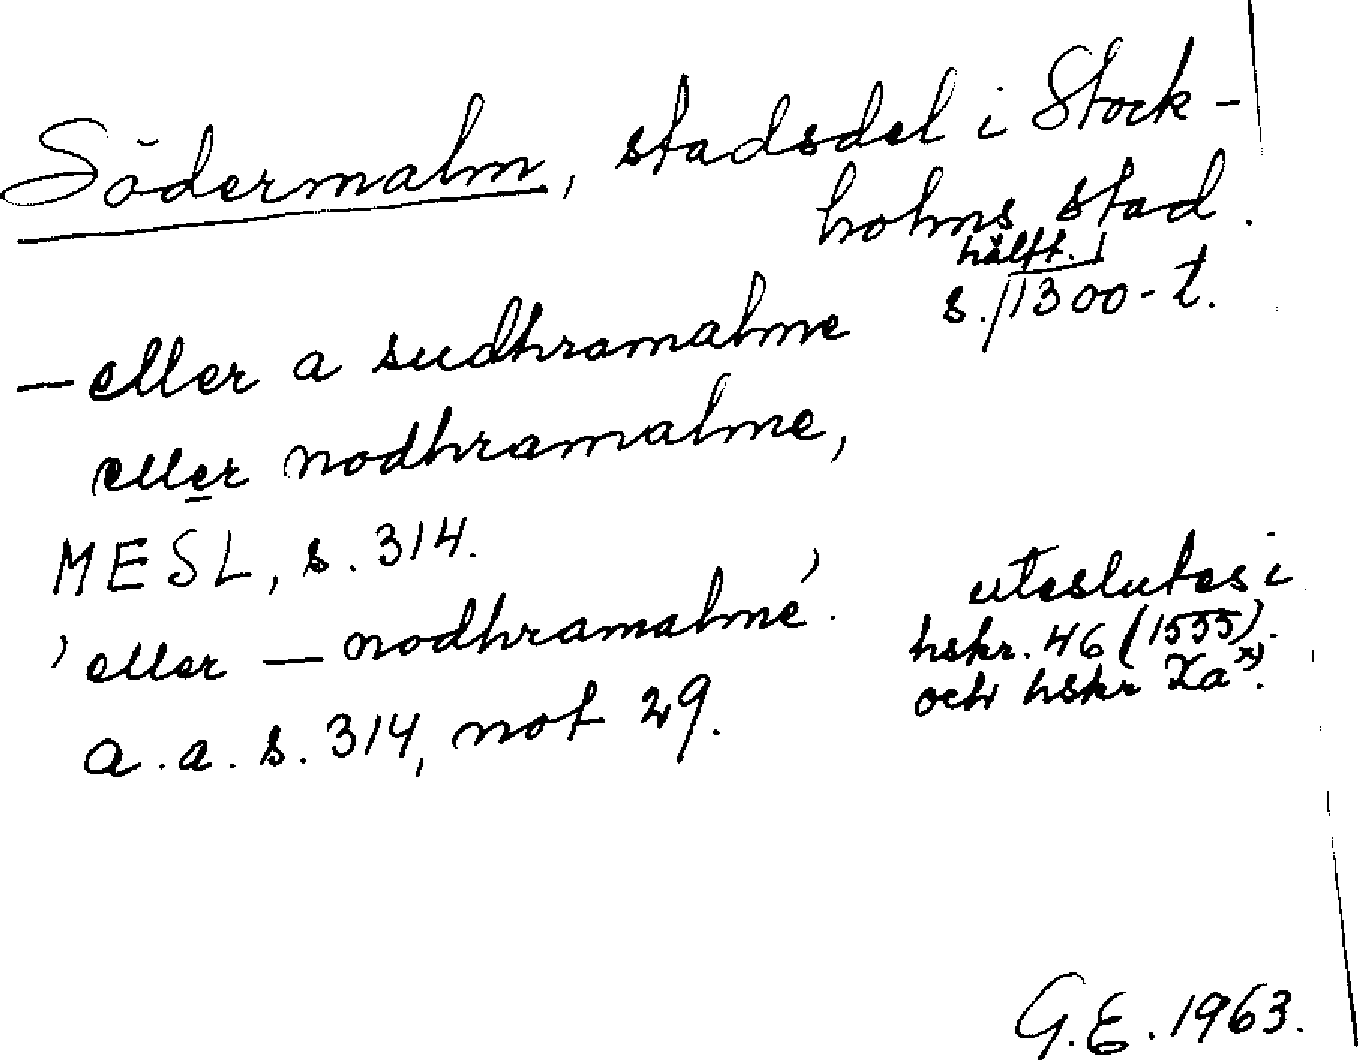 Södermalm, stadsdel i Stock-
holms stad.
hälft.
s. 1300-t.
— eller a sudhramalme
eller nodhramalme,
MESL, s. 314.
'eller — nodhramalme'. uteslutes i
hskr. 46 (1555).
och hskr Xa x).
a.a. s. 314, not 29.
G.E. 1963.